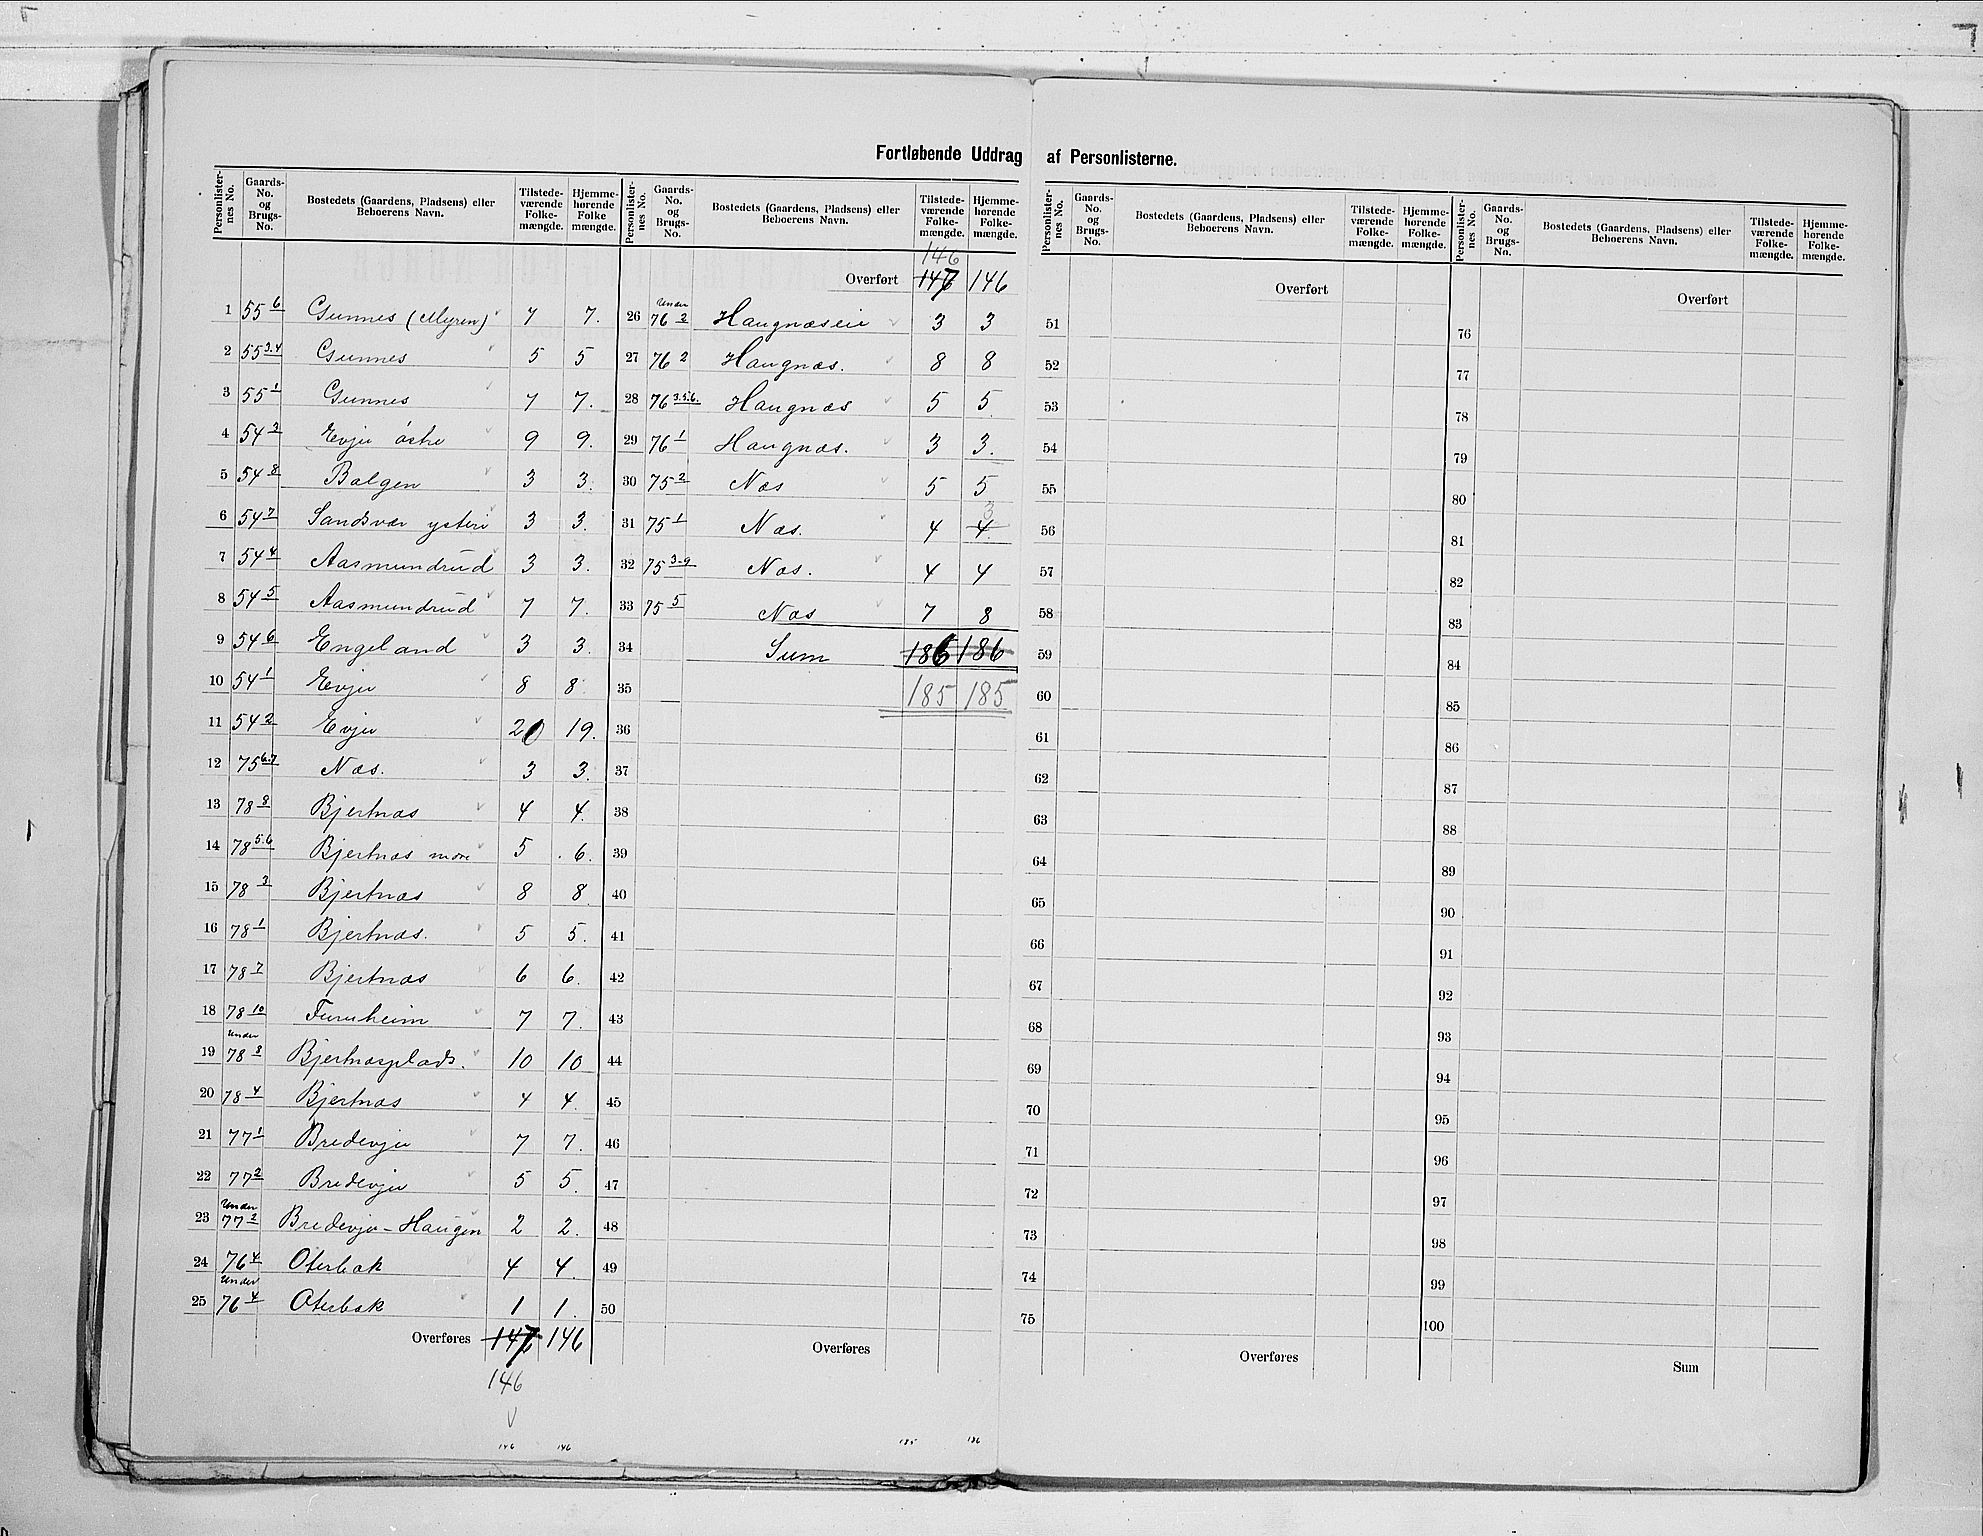 Fortløbende Uddrag af Personlisterne.
Personlisternes No. | Gaards-No. og Brugs-No. | Bostedets (Gaardens, Pladsens) eller Beboerens Navn. | Tilstedeværende Folkemængde. | Hjemmehørende Folkemængde.
1 55 6 Gunnes (Myren) 7 7.
2 55 3.4 Gunnes 5 5
3 55 1 Gunnes 7 7.
4 54 3 Evju östre 9 9.
5 54 8 Bakgen 3 3.
6 54 7 Sandsvær ysteri 3 3.
7 54 4 Aasmundrud 3 3.
8 54 5 Aasmundrud 7 7.
9 54 6 Engeland 3 3.
10 54 1 Evju 8 8.
11 54 2 Evju 20 19.
12 75 6.7 Næs. 3 3.
13 78 8 Bjertnæs 4 4.
14 78 5.6 Bjertnæs 5 6.
15 78 3 Bjertnæs 8 8.
16 78 1 Bjertnæs. 5 5.
17 78 7 Bjertnæs 6 6.
18 78 10 Furuheim 7 7.
19 Under 78 8 Bjertnæsplads. 10 10
20 78 4 Bjertnæs 4 4.
21 77 1 Bredevju 7 7.
22 77 2 Bredevju 5 5.
23 Under 77 2 Bredevju-Haugen 2 2.
24 76 4 Oterbæk 4 4.
25 Under 76 4 Oterbæk 1 1.
Overføres 147 146
146
146 146
146
Overført 147 146
26 Under 76 2 Haugnæseie 3 3
27 76 2 Haugnæs. 8 8
28 76 3.5.6. Haugnæs 5 5.
29 76 1 Haugnæs. 3 3.
30 75 2 Næs 5 5
3
31 75 1 Næs. 4 4.
32 75 3.9 Næs. 4 4
33 75 5 Næs 7 8
34 Sum 186 186
35 185 185
36
37
38
39
40
41
42
43
44
45
46
47
48
49
50
Overføres
185 186
Overført
51
52
53
54
55
56
57
58
59
60
61
62
63
64
65
66
67
68
69
70
71
72
73
74
75
Overføres
Overført
76
77
78
79
80
81
82
83
84
85
86
87
88
89
90
91
92
93
94
95
96
97
98
99
100
Sum